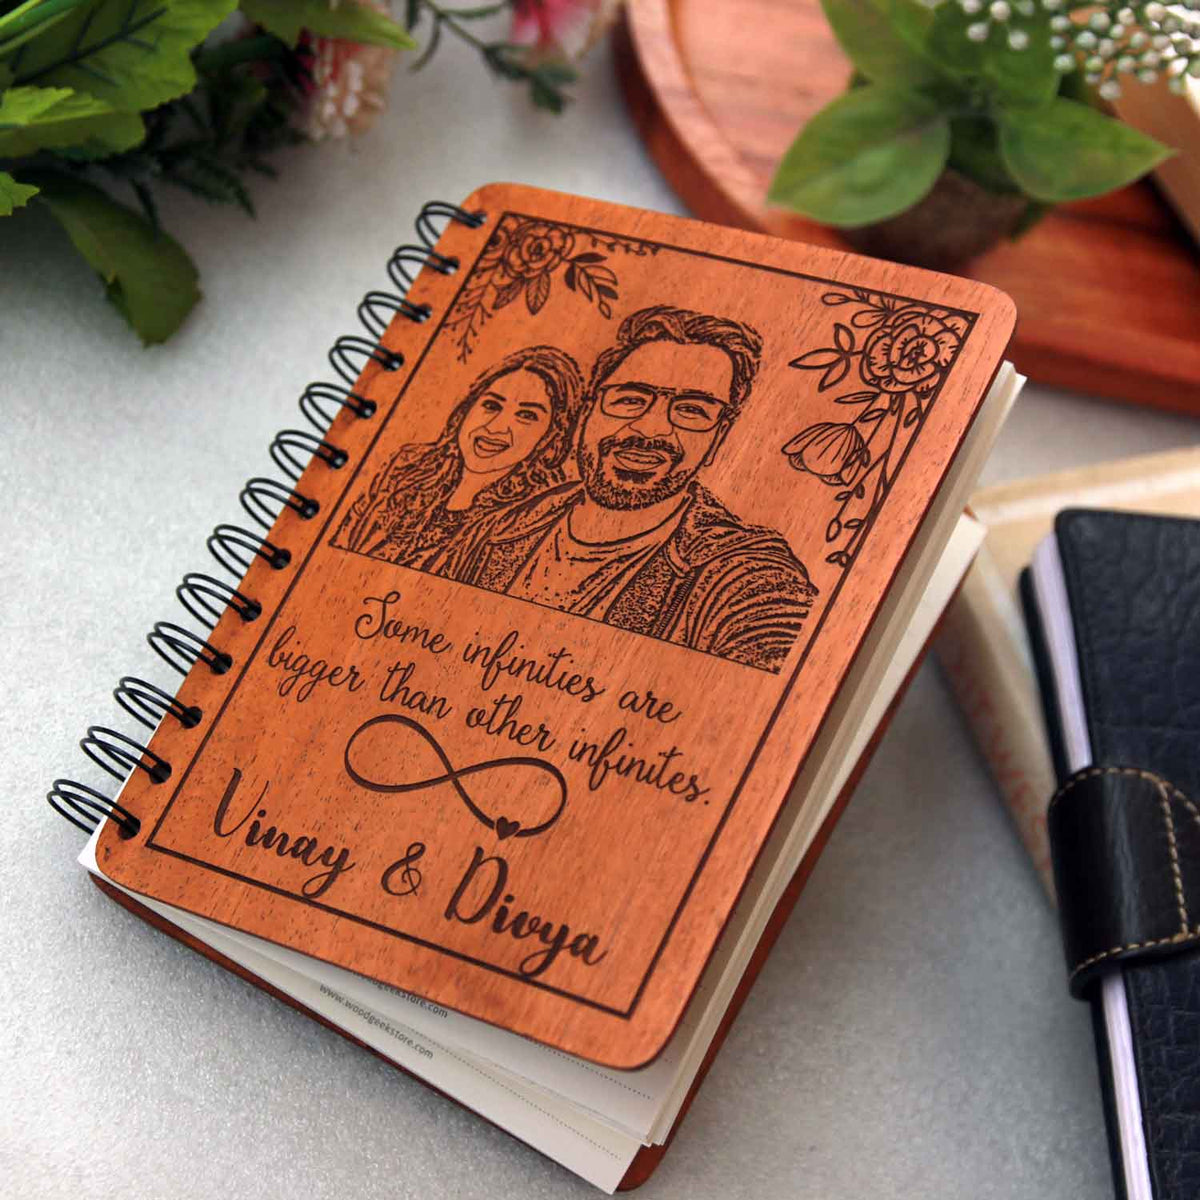 Some infinities are
bigger than other infinites.
Vinay & Divya
www.woodgeekstore.com
www.woodgeekstore.com